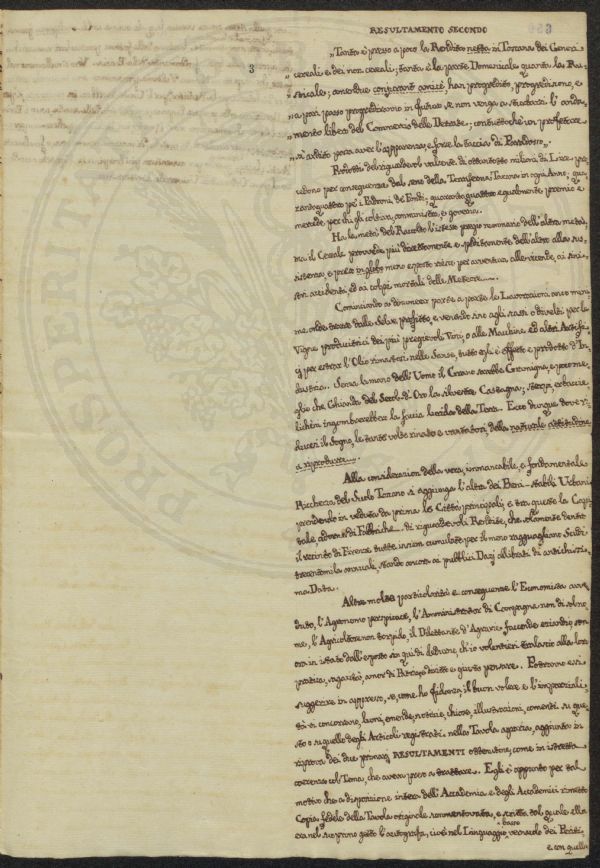 RESULTAMENTO SECONDO
3
„Tanta è presso a poco la Rendita netta in Toscana dei Generi
„cereali e dei non cereali; tanta è la parte Domenicale quanta la Ru„
„sticale; amendue congiunte han progredito, progrediscono, e
„a pari passo progrediranno in futuro se non venga a sturbarsi l'anda„
„mento libero del Commercio delle Derrate;
„ardito para aver l'apparenza, e forse la taccia di Paradosso„.
Prodotti del ragguardevol valsente di ottantotto milioni di Lire pro„
vedono per conseguenza dal seno della Terraferma Toscana in ogni Anno: qua„
rantaquattro pe' i Padroni de' Fondi: quarantaquattro egualmente premio e
mercede per chi gli coltiva, amministra, e governa.
Ha la metà del Raccolto l'istesso pregio nummario dell'altra metà;
ma il Cereale provvede più direttamente e speditamente dell'altro alla sus„
sistenza, e preso in globo meno esposto viene per avventura alle vicende, ai sini„
stri accidenti, ed ai colpi mortali delle Meteore......
Cominciando a denumerar parte a parte le Lavorazioni anco mini„
me onde trarre dalle Selve profitto, e venendo sino agli sassi o divelti per le
Vigne produttrici dei più pregievoli Vini, o alle Macchine ed altri Artifi„
cj per estrar l'Olio rimastovi nelle Sanse, tutto egli è effetto e prodotto d'In„
dustria. Senza la mano dell'Uomo il Grano sarebbe Gramigna, e poco me„
glio che Ghianda del Secol d'Oro la silvestre Castagna; sterpi, ortiche e
licheni ingombrerebber la faccia lurida della Terra. Ecco dunque dove ri„
ducesi il Sogno, le tante volte rinato e vantatosi, della naturale attitudine
a riprodurre.....
Alla considerazion della vera, immancabile, e fondamentale
Ricchezza del Suolo Toscano si aggiunga l'altra dei Beni-stabili Urbani
prendendo in veduta da prima le Città principali, e tra queste la Capi„
tale, adorna di Fabbriche.... di riguardevoli Rendite, che solamente dentro
il recinto di Firenze tutte insiem cumulate per il meno ragguaglian Scudi
trecentomila annuali, stando ancora ai pubblici Dazj allibrati di antichissi„
ma Data.
Altre molte particolarità e conseguenze l'Economista avve„
duto, l'Agronomo perspicace, l'Amministrator di Campagna non di solo no„
me, l'Agricoltore non torpido, il Dilettante d'Agrarie faccende eziandio son
ora in istato dall'esposto sin qui di dedurne, ch'io volentieri tralascio alla loro
pratica, sagacità, amor di Patria, e giusto pensare. Potranno essi
suggerire in appresso, se, come ho fidanza, il buon volere e l'imparziali„
tà vi concorrano, lumi, emende, notizie, chiose, illustrazioni, comenti su que„
sto o su quello degli Articoli registrati nella Tavola agraria, aggiunta in
riprova dei due primarj RESULTAMENTI ottenutone, come in istretta
coerenza col Tema, che aveva preso a trattare. Egli è appunto per tal
motivo che a disposizione intera dell'Accademia e degli Accademici rimetto
Copia fedele della Tavola originale rammentovata, e scritta tal quale ella
era nel suo primo getto l'autografa, cioè nel Linguaggio basso vernacolo dei Periti,
e con quella